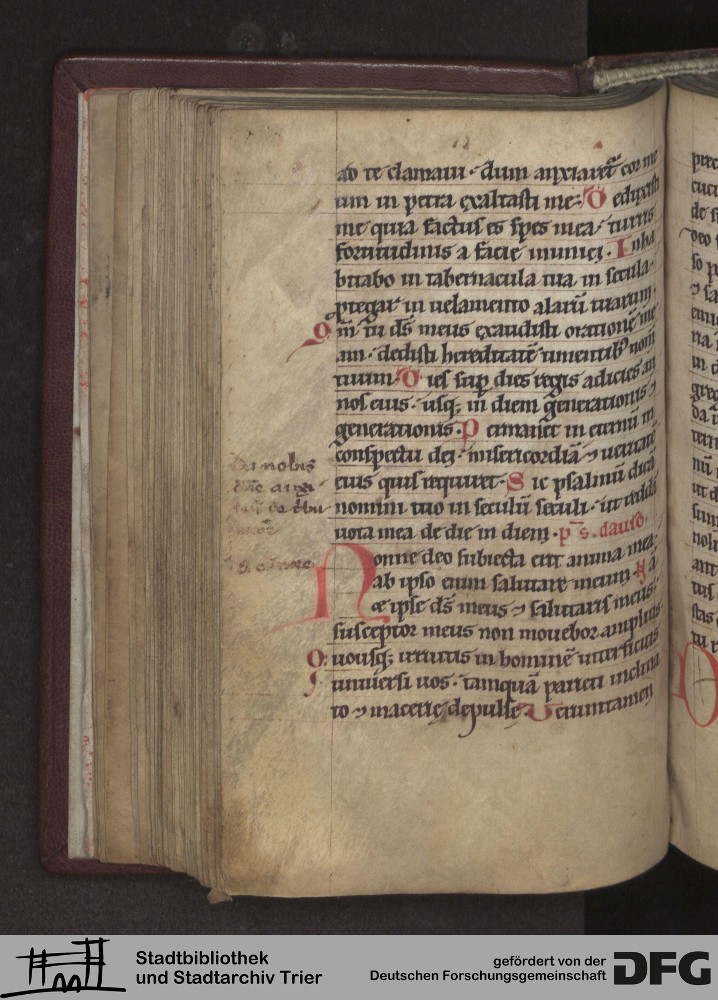 ad te clamaui · dum anxiaret᷑ cor me
um in petra exaltasti me · D eduxisti
me quia factus es spes mea · turris
fortitudinis a facie inimici · I nha
bitabo in tabernacula tua in secula ·
ꝓtegar in uelamento alarū tuarum ·
Qm̄ tu ds̄ meus exaudisti orationē me
am · dedisti hereditatē timentibꝰ nom̄
tuum · D ies sup dies regis adicies an
nos eius · usqꝫ in diem generationis ⁊
generationis · P ermanet in eternū in
conspectu dei · misericordiā ⁊ ueritatē
eius quis requiret · S ic psalmū dicā
nomini tuo in seculū seculi · ut reddā
uota mea de die in diem · p̄s · dauid ·
Da nobis
Nonne deo subiecta erit anima mea ·
ab ipso enim salutare meum · N ā
⁊ ipse ds̄ meus ⁊ salutaris meus ·
susceptor meus non mouebor amplius ·
Quousqꝫ irruitis in hominē interficitis
uniuersi uos · tamquā parieti inclina
to ⁊ macerię depulsę · U erumtamen
Stadtbibliothek
und Stadtarchiv Trier
gefördert von der
Deutschen Forschungsgemeinschaft
DFG